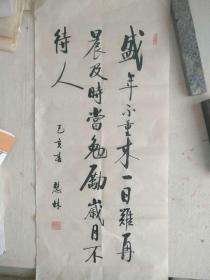 盛年不重来一日難再
晨及時當勉勵歲月不
待人
己亥春